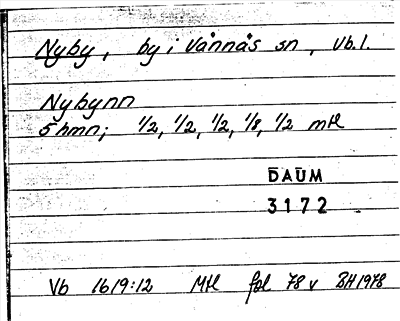 Nyby, by i Vännäs sn, Vb.l.
Nybynn
5 hmn; 1/2, 1/2, 1/2, 1/8, 1/2 mtl
DAUM
3172
Vb 1619:12 Mtl fol 78 v BH 1978